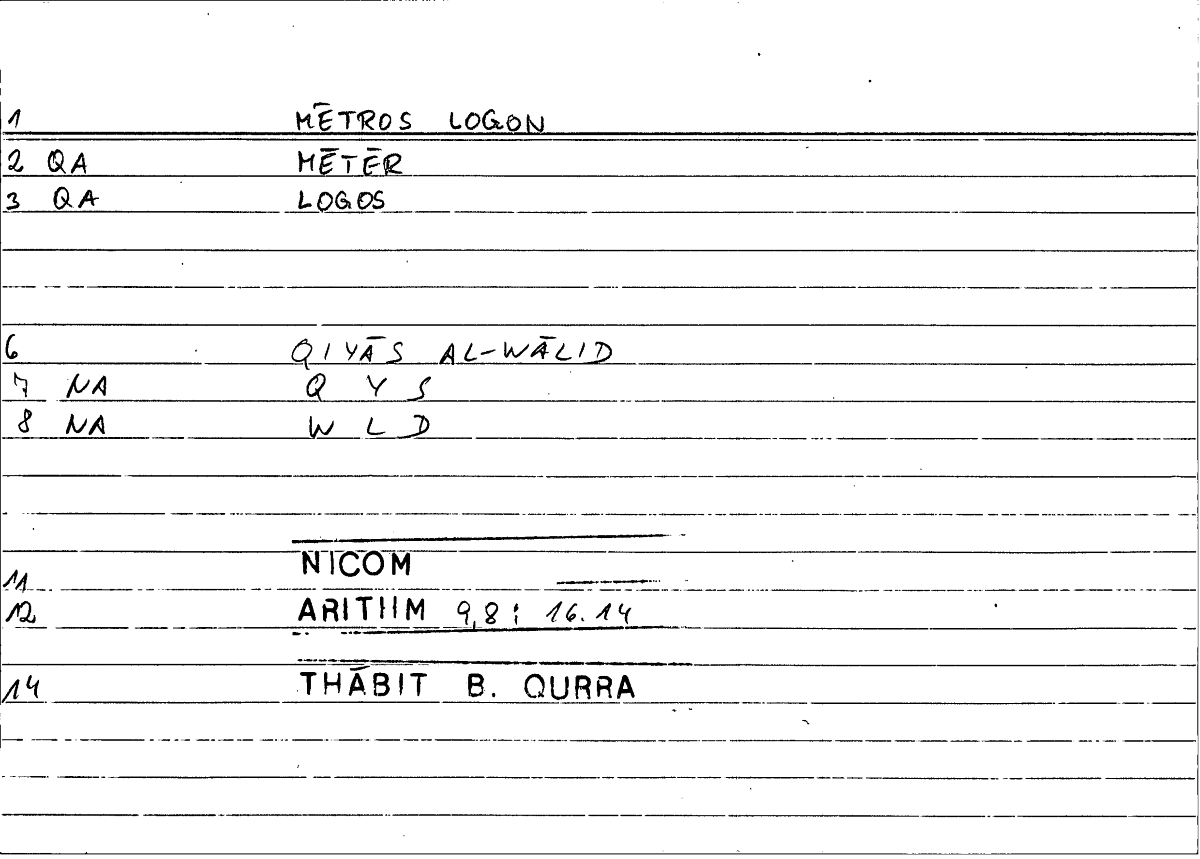 1 MĒTROS LOGON
2 QA MĒTĒR
3 QA LOGOS
6 QIYĀS AL-WĀLID
7 NA Q Y S
8 NA W L D
11 NICOM
12 ARITHM 9,8 : 16.14
14 THĀBIT B. QURRA